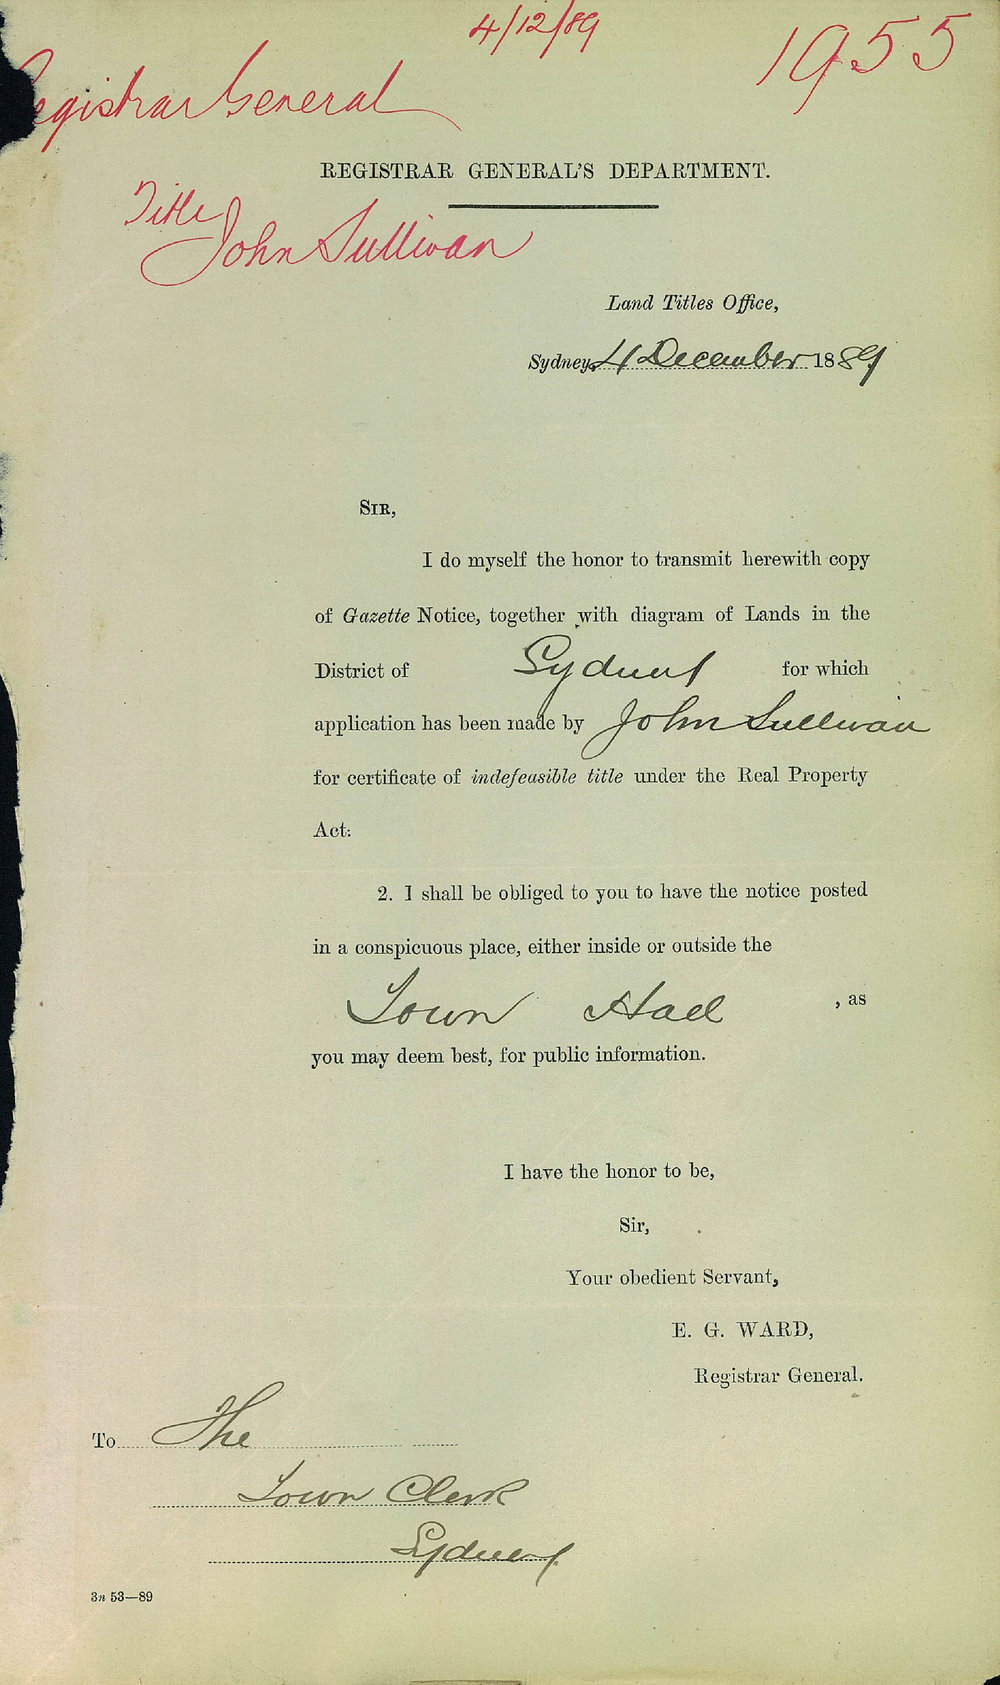 4/12/89
1955
Registrar General
REGISTRAR GENERAL'S DEPARTMENT.
Title
John Sullivan
Land Titles Office,
Sydney, 4 December 1889
SIR,
I do myself the honor to transmit herewith copy
of Gazette Notice, together with diagram of Lands in the
District of Sydney for which
application has been made by John Sullivan
for certificate of indefeasible title under the Real Property
Act:
2. I shall be obliged to you to have the notice posted
in a conspicuous place, either inside or outside the
Town Hall , as
you may deem best, for public information.
I have the honor to be,
Sir,
Your obedient Servant,
E. G. WARD,
Registrar General.
To The
Town Clerk
Sydney
3n 53—89